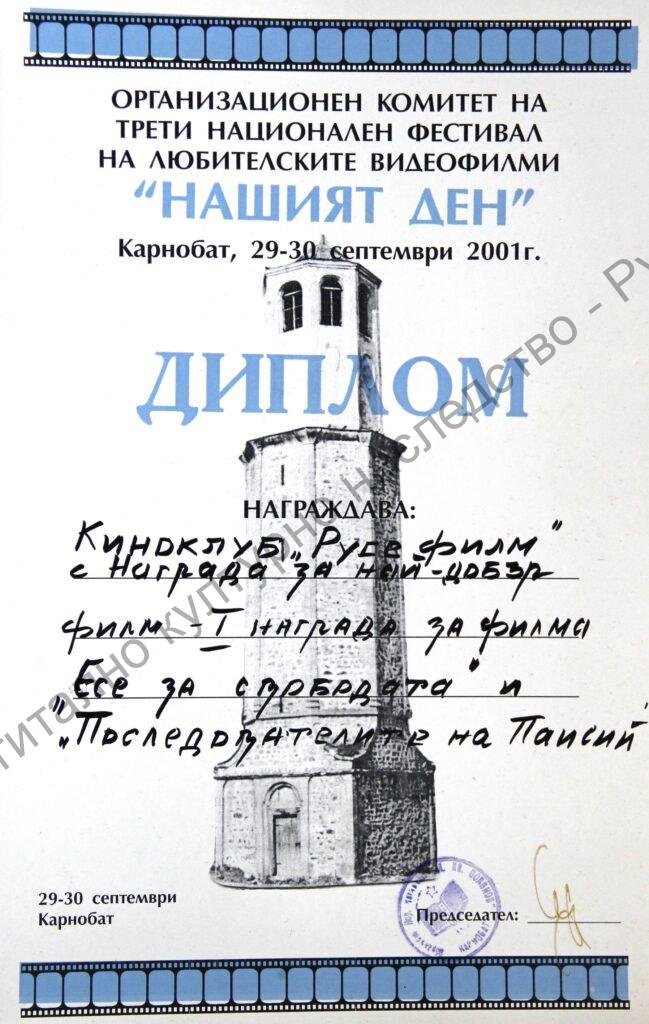 ОРГАНИЗАЦИОНЕН КОМИТЕТ НА
ТРЕТИ НАЦИОНАЛЕН ФЕСТИВАЛ
НА ЛЮБИТЕЛСКИТЕ ВИДЕОФИЛМИ
"НАШИЯТ ДЕН"
Карнобат, 29-30 септември 2001г.
ДИПЛОМ
НАГРАЖДАВА:
Киноклуб „Русе филм"
с Награда за най-добър
филм - I награда за филма
„Есе за свободата" и
„Последователите на Паисий"
29-30 септември
Карнобат
Председател:
КАРНОБАТ
культурно наследство - Ру